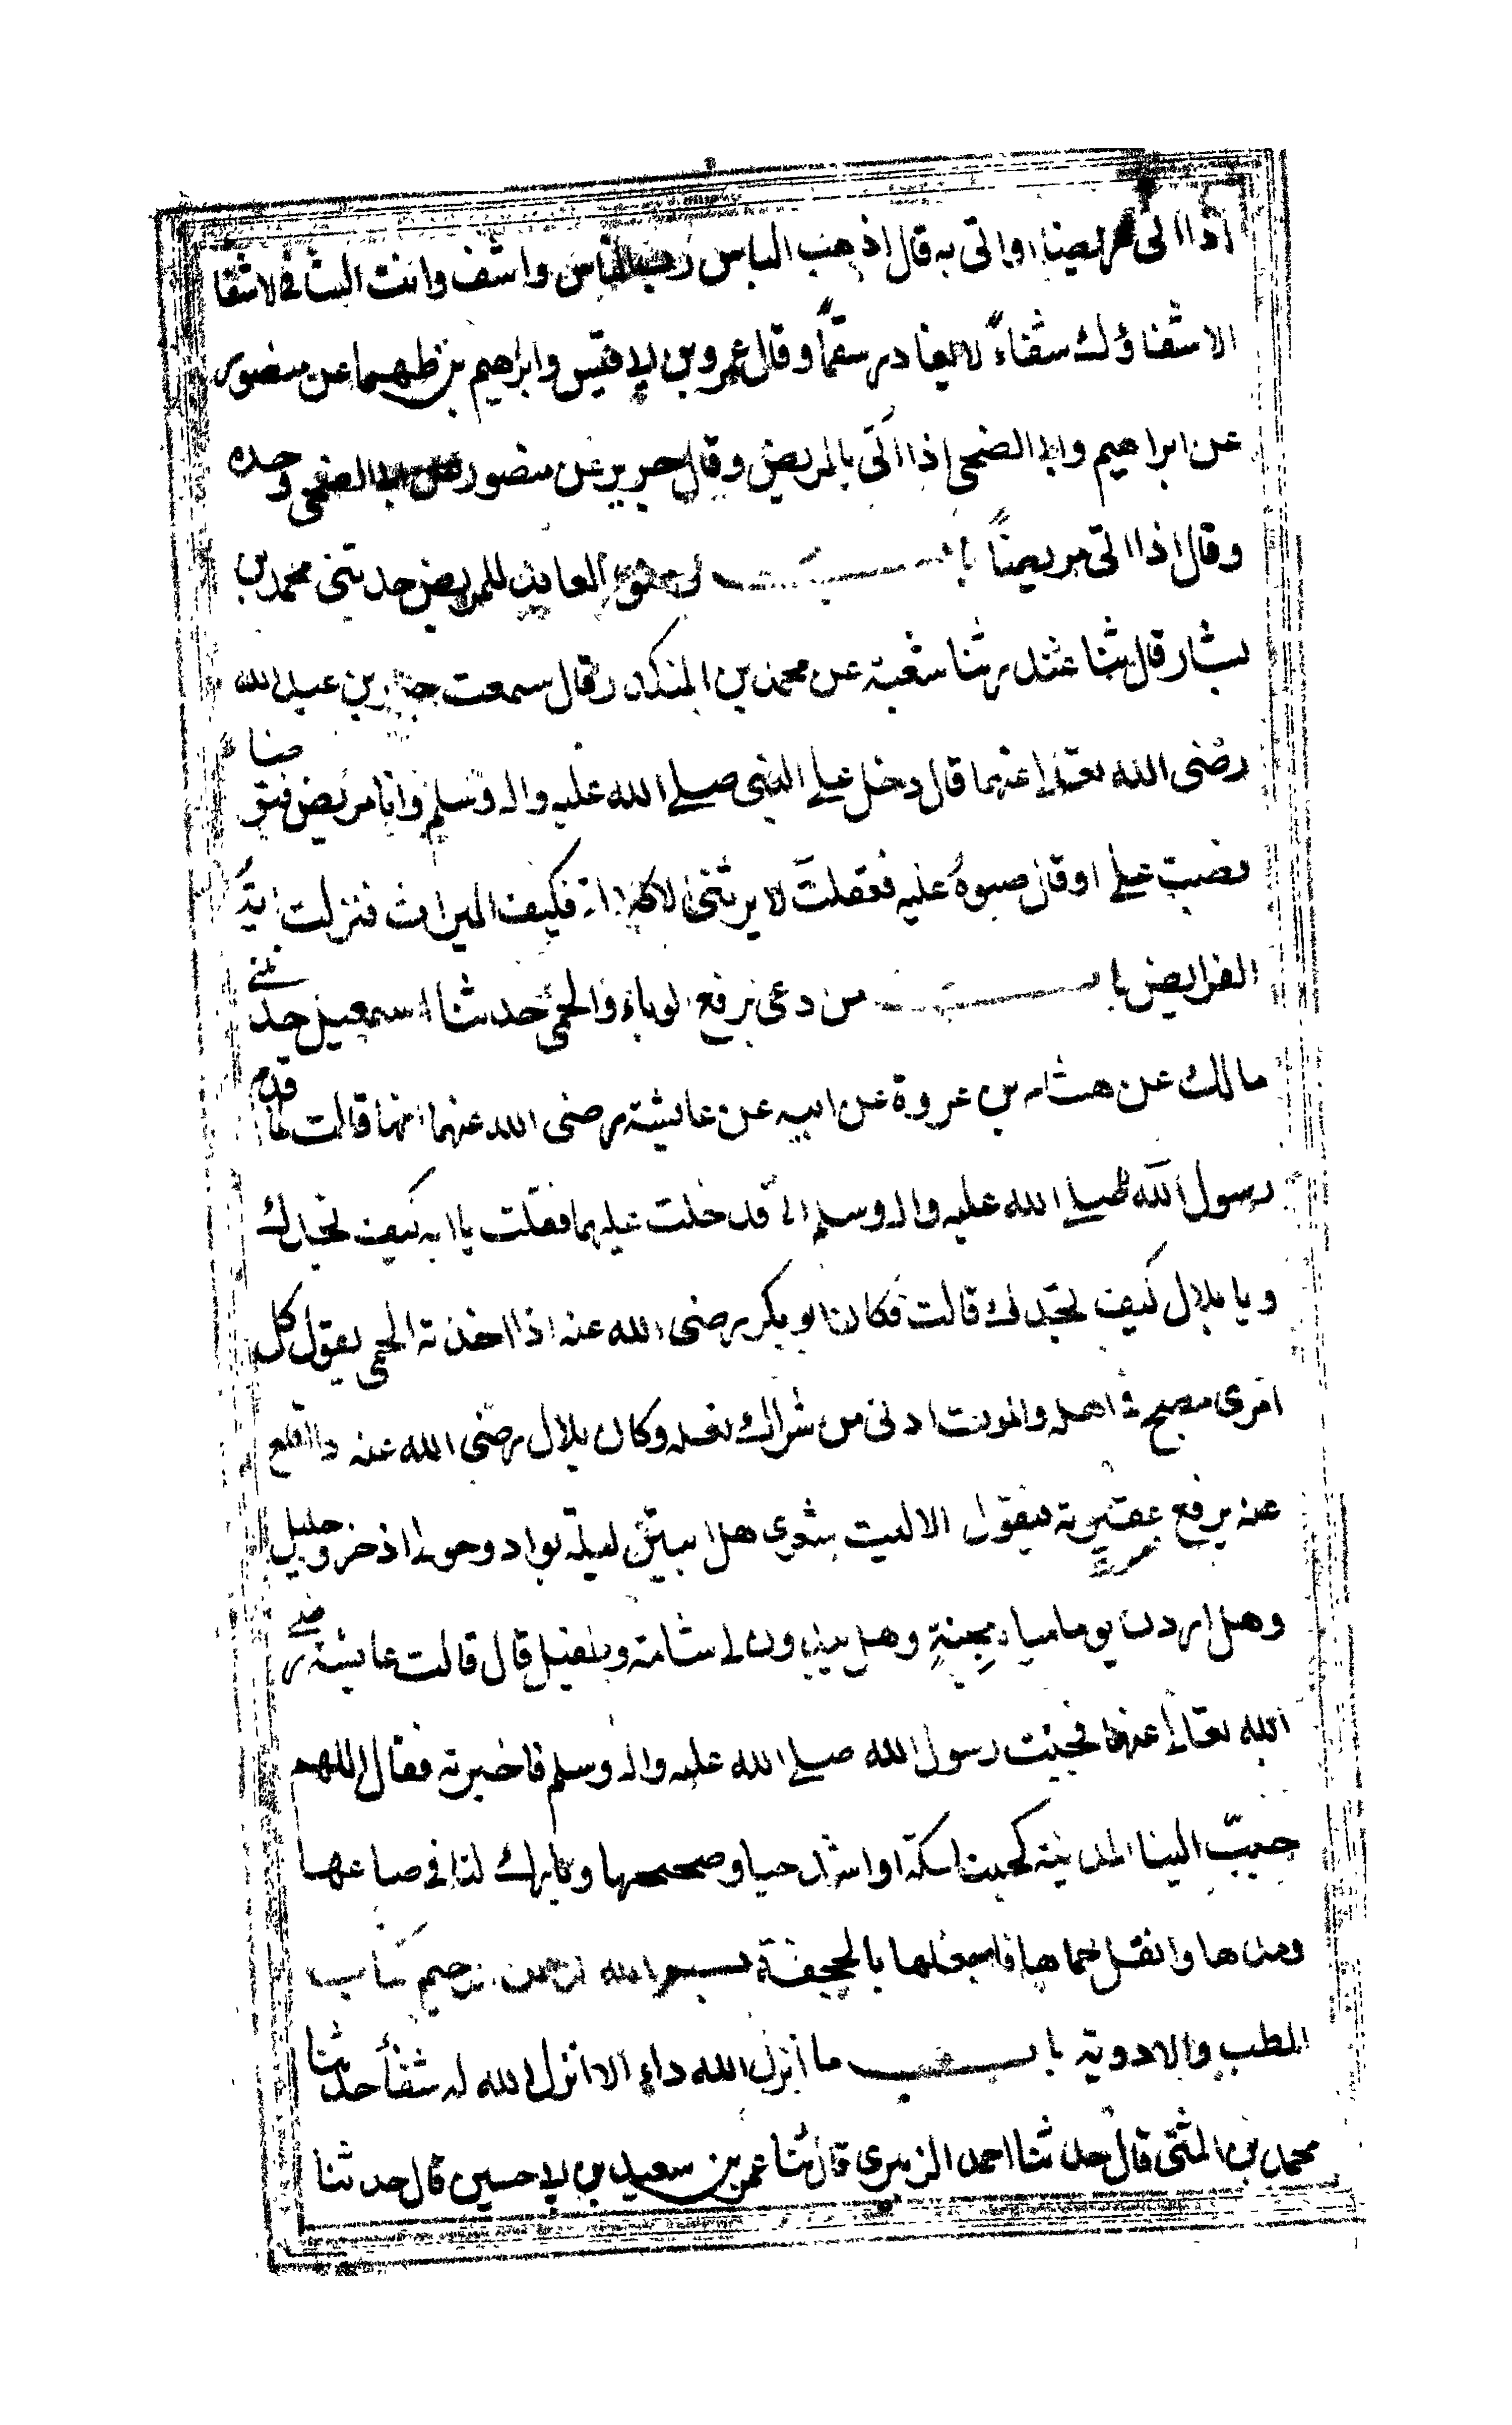 اذا اتى مريضا او اتى به قال اذهب الباس رب الناس واشف وانت الشافي لا شفا
الا شفاؤك شفاءً لا يغادر سقمًا وقال عمرو بن ابي قيس وابراهيم بن طهما عن منصور
عن ابراهيم وابي الضحى اذا اتى بالمريض وقال جرير عن منصور عن ابي الضحى وحده
وقال اذا اتى مريضًا باب وضوء العايد للمريض حدثني محمد بن
بشار قال ثنا غندر ثنا شعبة عن محمد بن المنكدر قال سمعت جابر بن عبد الله
رضى الله تعالى عنهما قال دخل علي النبي صلى الله عليه واله وسلم وانا مريض فتوضا
فصب علي او قال صبوه عليه فعقلت لا يرثني الا كلالة فكيف الميراث فنزلت اية
الفرايض باب من دعى برفع الوباء والحمى حدثنا اسمعيل حدثني
مالك عن هشام بن عروة عن ابيه عن عايشة رضى الله عنها انها قالت لما قدم
رسول الله صلى الله عليه واله وسلم الى قد خلت عليهما فقلت يا ابه كيف تجدك
ويا بلال كيف تجدك قالت فكان ابو بكر رضى الله عنه اذا اخذته الحمى يقول كل
امرى مصبح في اهله والموت ادنى من شراك نعله وكان بلال رضى الله عنه اذا اقلع
عنه يرفع عقيرته فيقول الا ليت شعري هل ابيتن ليلة بواد وحولى اذخر وجليل
وهل اردن يوما مياه مجنةٍ وهل يبدون لى شامة وطفيل قال قالت عايشة رضى
الله تعالى عنها فجئت رسول الله صلى الله عليه واله وسلم فاخبرته فقال اللهم
حبب الينا المدينة كحبنا مكة او اشد حبا وصححها وبارك لنا في صاعها
ومدها وانقل حماها فاجعلها بالجحفة بسم الله الرحمن الرحيم كتاب
الطب والادوية باب ما انزل الله داء الا انزل الله له شفأ حدثنا
محمد بن المثنى قال حدثنا احمد الزبيرى قال ثنا عمر بن سعيد بن ابي حسين قال حدثنا